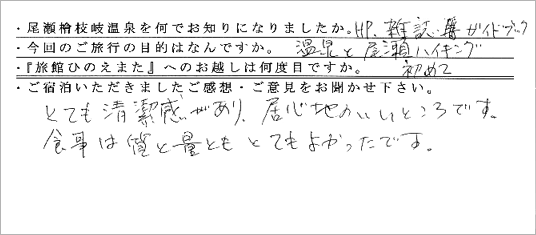 ・尾瀬檜枝岐温泉を何でお知りになりましたか。HP. 雑誌・ガイドブック
・今回のご旅行の目的はなんですか。 温泉と尾瀬ハイキング
・『旅館ひのえまた』へのお越しは何度目ですか。 初めて
・ご宿泊いただきましたご感想・ご意見をお聞かせ下さい。
とても清潔感があり、居心地がいいところです。
食事は質と量ともとてもよかったです。